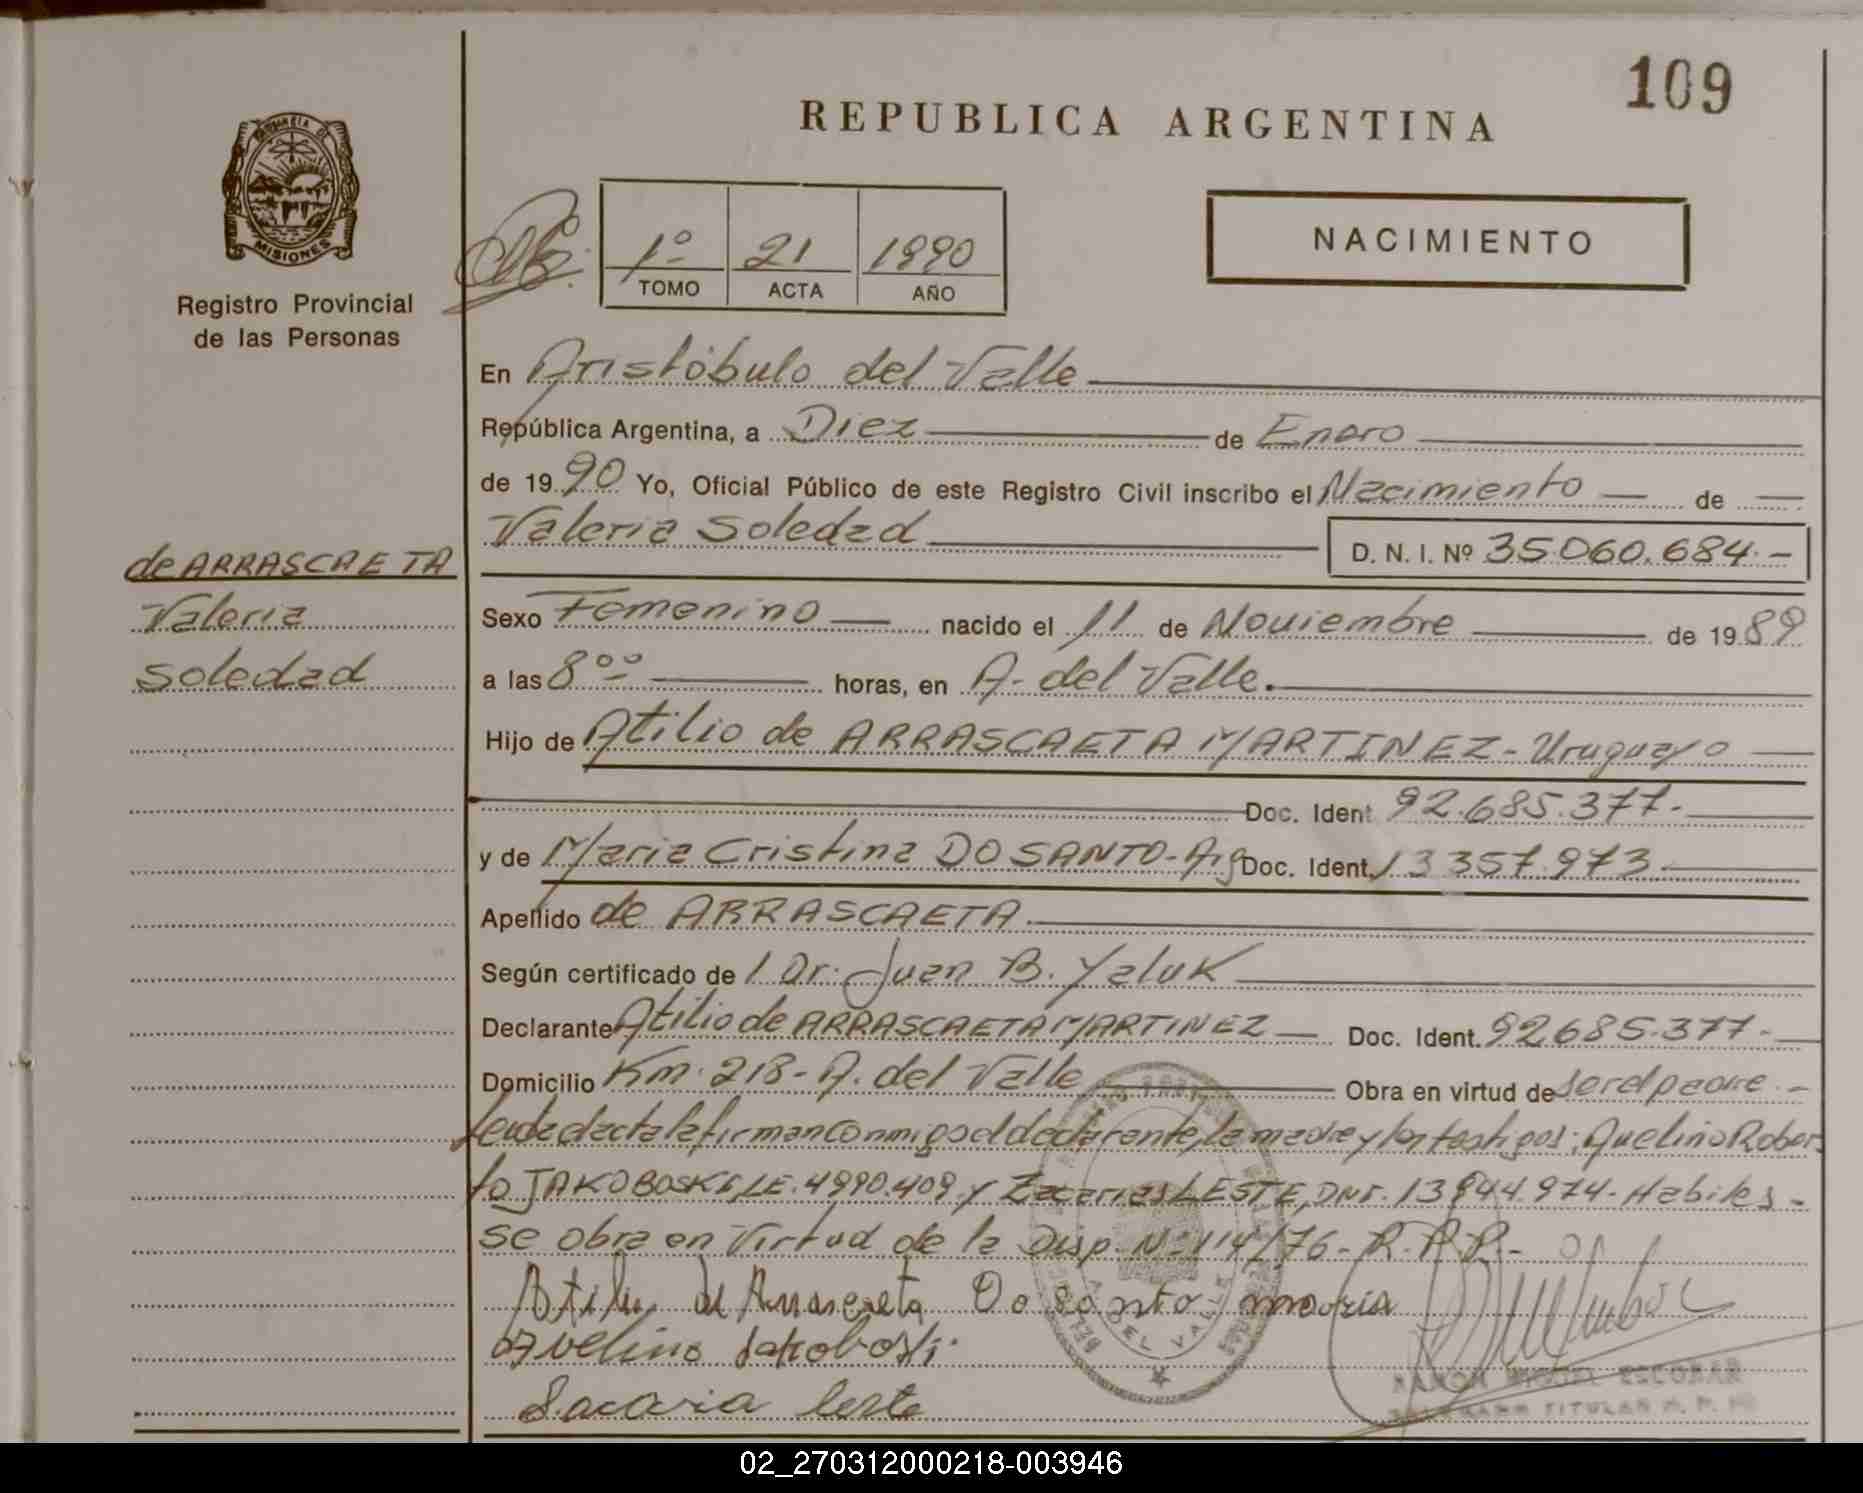 109
REPUBLICA ARGENTINA
PROVINCIA DE
MISIONES
Registro Provincial
de las Personas
1º 21 1990
TOMO ACTA AÑO
NACIMIENTO
En Aristóbulo del Valle
República Argentina, a Diez de Enero
de 1990 Yo, Oficial Público de este Registro Civil inscribo el Nacimiento de
Valeria Soledad D. N. I. Nº 35.060.684.-
de ARRASCAETA
Valeria
Soledad
Sexo Femenino nacido el 11 de Noviembre de 1989
a las 8ºº horas, en A. del Valle.
Hijo de Atilio de ARRASCAETA MARTINEZ - Uruguayo
Doc. Ident. 92.685.377.-
y de Maria Cristina DO SANTO - Arg Doc. Ident. 13357.973.
Apellido de ARRASCAETA.
Según certificado de l Dr. Juan B. Yaluk
Declarante Atilio de ARRASCAETA MARTINEZ Doc. Ident. 92685.377.-
Domicilio Km. 218 - A. del Valle Obra en virtud de ser el padre.-
Leida el acta la firman conmigo el declarante, la madre y los testigos: Avelino Rober
to JAKOBOSKI, LE. 4990.409. y Zacarias LESTE, DNI. 13944.974. Habiles -
se obra en Virtud de la Disp. Nº 114/76 - R.P.P.-
Atilio de Arrascaeta Do santo maria
Avelino Jakoboski
Sacaria leste
DEL VALLE
RAMON MIGUEL ESCOBAR
TITULAR
02_270312000218-003946